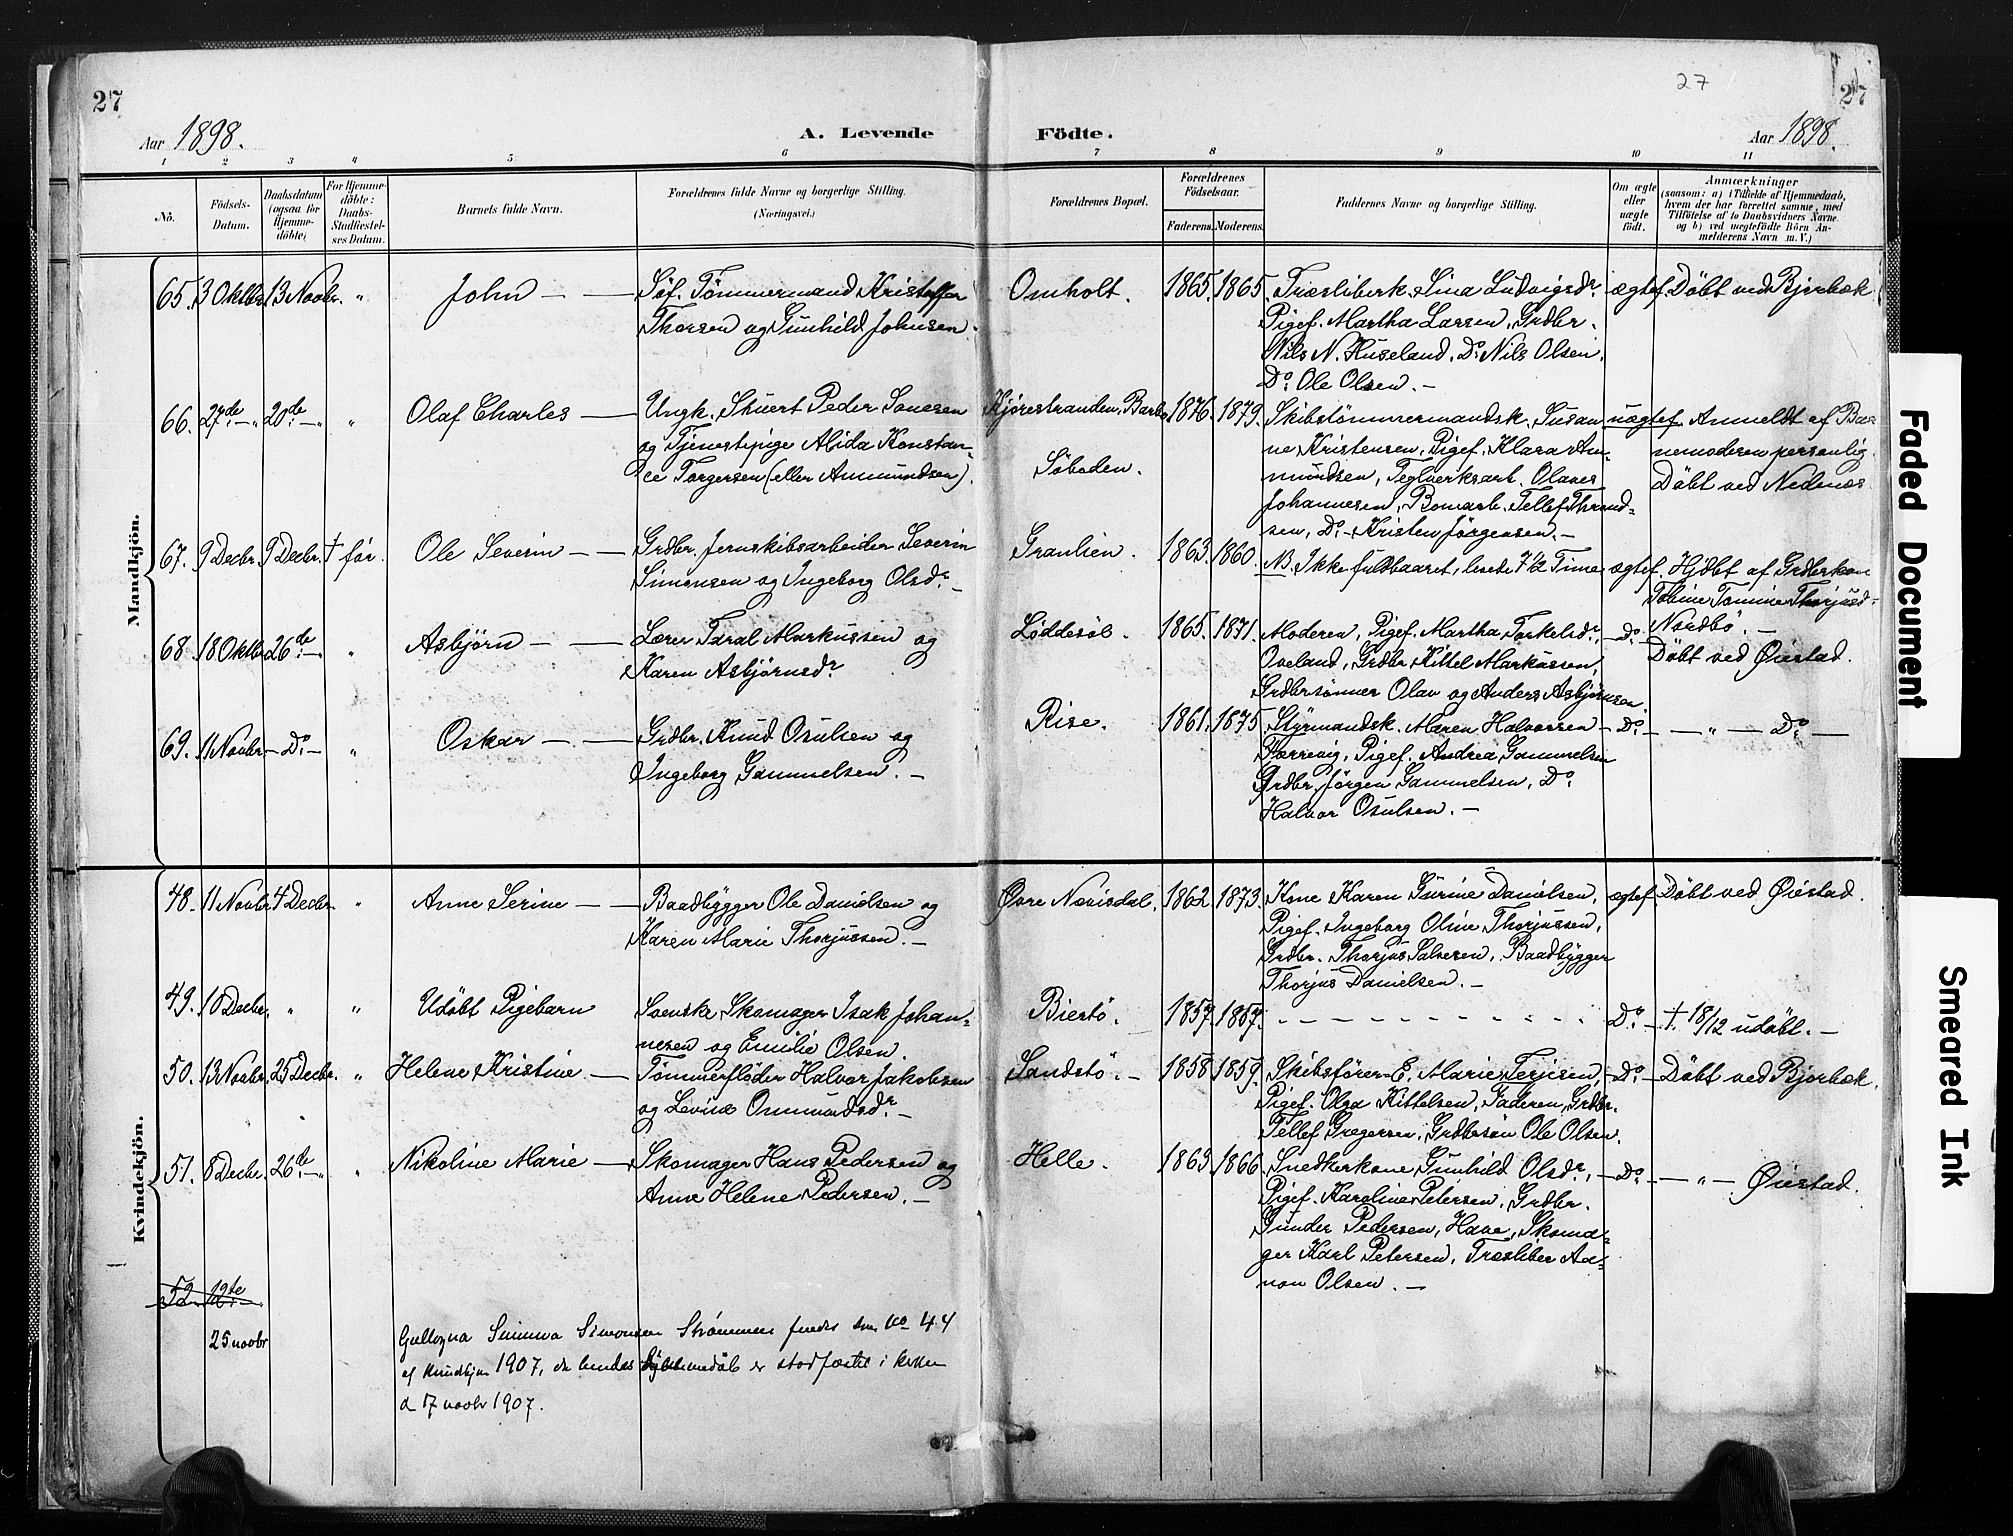 27
27
27
Aar 1898.
A. Levende
Födte.
Aar 1898.
1 2 3 4 5 6 7 8 9 10 11
No.
Födsels-
Datum.
Daabsdatum
(ogsaa for
Hjemme-
døbte)
For Hjemme-
døbte:
Daabs-
Stadfæstel-
ses Datum.
Barnets fulde Navn.
Forældrenes fulde Navne og borgerlige Stilling.
(Næringsvei.)
Forældrenes Bopæl.
Forældrenes
Födselsaar.
Faderens. Moderens.
Faddernes Navne og borgerlige Stilling.
Om ægte
eller
uægte
födt.
Anmærkninger
(saasom: a) i Tilfælde af Hjemmedaab,
hvem der har forrettet samme, med
Tilföielse af to Daabsvidners Navne
og b) ved uægtefödte Börn An-
melderens Navn m. V.)
Mandkjön.
65. 3 Oktbr. 13 Novbr. "
John
Sif. Tømmermand Kristoffer
Thorsen og Gunhild Johnsen.
Omholt. 1865. 1865.
Træsliberk. Sina Ludvigsdr.
Pigef. Martha Larsen, Grdbr.
Nils N. Huseland, Do. Nils Olsen,
Do. Ole Olsen. —
ægtef. Döbt ved Bjorbæk
66. 27de — " 20de — " "
Olaf Charles
Ungk. Stuert Peder Sonesen
og Tjenestepige Alida Konstan-
ce Torgersen (eller Ammundsen).
Kjørestranden, Barbo
Söboden.
1876. 1879.
Skibstömmermandsk. Susan
ne Kristensen, Pigef. Klara Am-
mundsen, Teglverksarb. Olaves
Johannesen, Bomarb. Tellef Thrond-
sen, Do. Kristen Jörgensen. —
uægtef. Anmeldt af Bar
nemoderen personlig.
Döbt ved Nedenæs
67. 9 Decbr. 9 Decbr. † før.
Ole Severin
Grdbr. Jernskibsarbeider Severin
Simonsen og Ingeborg Olsdr. —
Granlien. 1863. 1860.
NB. Ikke fuldbaaret, levede 7 1/2 Time
ægtef. Hjdbt af Grdbrkon
Tobine Tomine Thorjusd-
Nordbö. —
68. 18 Oktbr. 26de — " "
Asbjørn
Lærer Taral Markussen og
Karen Asbjørnsdr.
Løddesöl. 1865. 1871.
Moderen, Pigef. Martha Torkelsdr.
Oveland, Grdbr. Kittel Markussen,
Grdbrsönner Olav og Anders Asbjörnsen.
— Do. — Döbt ved Øiestad.
69. 11 Novbr. — Do. — "
Oskar
Grdbr. Knud Osulsen og
Ingeborg Gammelsen. —
Rise. 1861. 1875.
Styrmandsk. Maren Halvorsen
Hærrevig, Pigef. Andrea Gammelsen
Grdbr. Jörgen Gammelsen, Do.
Halvor Osulsen. —
— Do. — — " — Do. —
Kvindekjön.
48. 11 Novbr. 4 Decbr. "
Anne Serine
Baadbygger Ole Danielsen og
Karen Marie Thorjussen. —
Øvre Nævisdal. 1862. 1873.
Kone Karen Gurine Danielsen,
Pigef. Ingeborg Oline Thorjussen,
Grdbr. Thorjus Salvesen, Baadbygger
Thorjus Danielsen. —
ægtef. Döbt ved Øiestad.
49. 10 Decbr. " "
Udöbt Pigebarn
Svenske Skomager Isak Johan-
nesen og Emilie Olsen.
Biestö. 1857. 1867.
Do. — †. 18/12 udöbt. —
50. 13 Novbr. 25 Decbr. "
Helene Kristine
Tömmerfløder Halvor Jakobsen
og Levine Ommundsdr. —
Sandstö. — 1858. 1859.
Skibsfører-E. Marie Terjesen,
Pigef. Olga Kittelsen, Faderen, Grdbr.
Tellef Gregersen, Grdbrsön Ole Olsen.
Do. — Döbt ved Bjorbæk.
51. 8 Decbr. 26de — " "
Nikoline Marie
Skomager Hans Pedersen og
Anne Helene Pedersen. —
Helle. 1863. 1866.
Snedkerkone Gunhild Olsdr.,
Pigef. Karoline Petersen, Grdbr.
Gunder Pedersen, Have, Skoma-
ger Karl Petersen, Træsliber Aa-
non Olsen. —
— Do. — — " — Øiestad.
52. 12te —
25 novbr
Simonsen Strømmen findes som No 44
af Kvindkjøn 1907, da hendes Hjemmedåb er stadfæstet i kirken
d 17 novbr 1907.
Faded Document
Smeared Ink